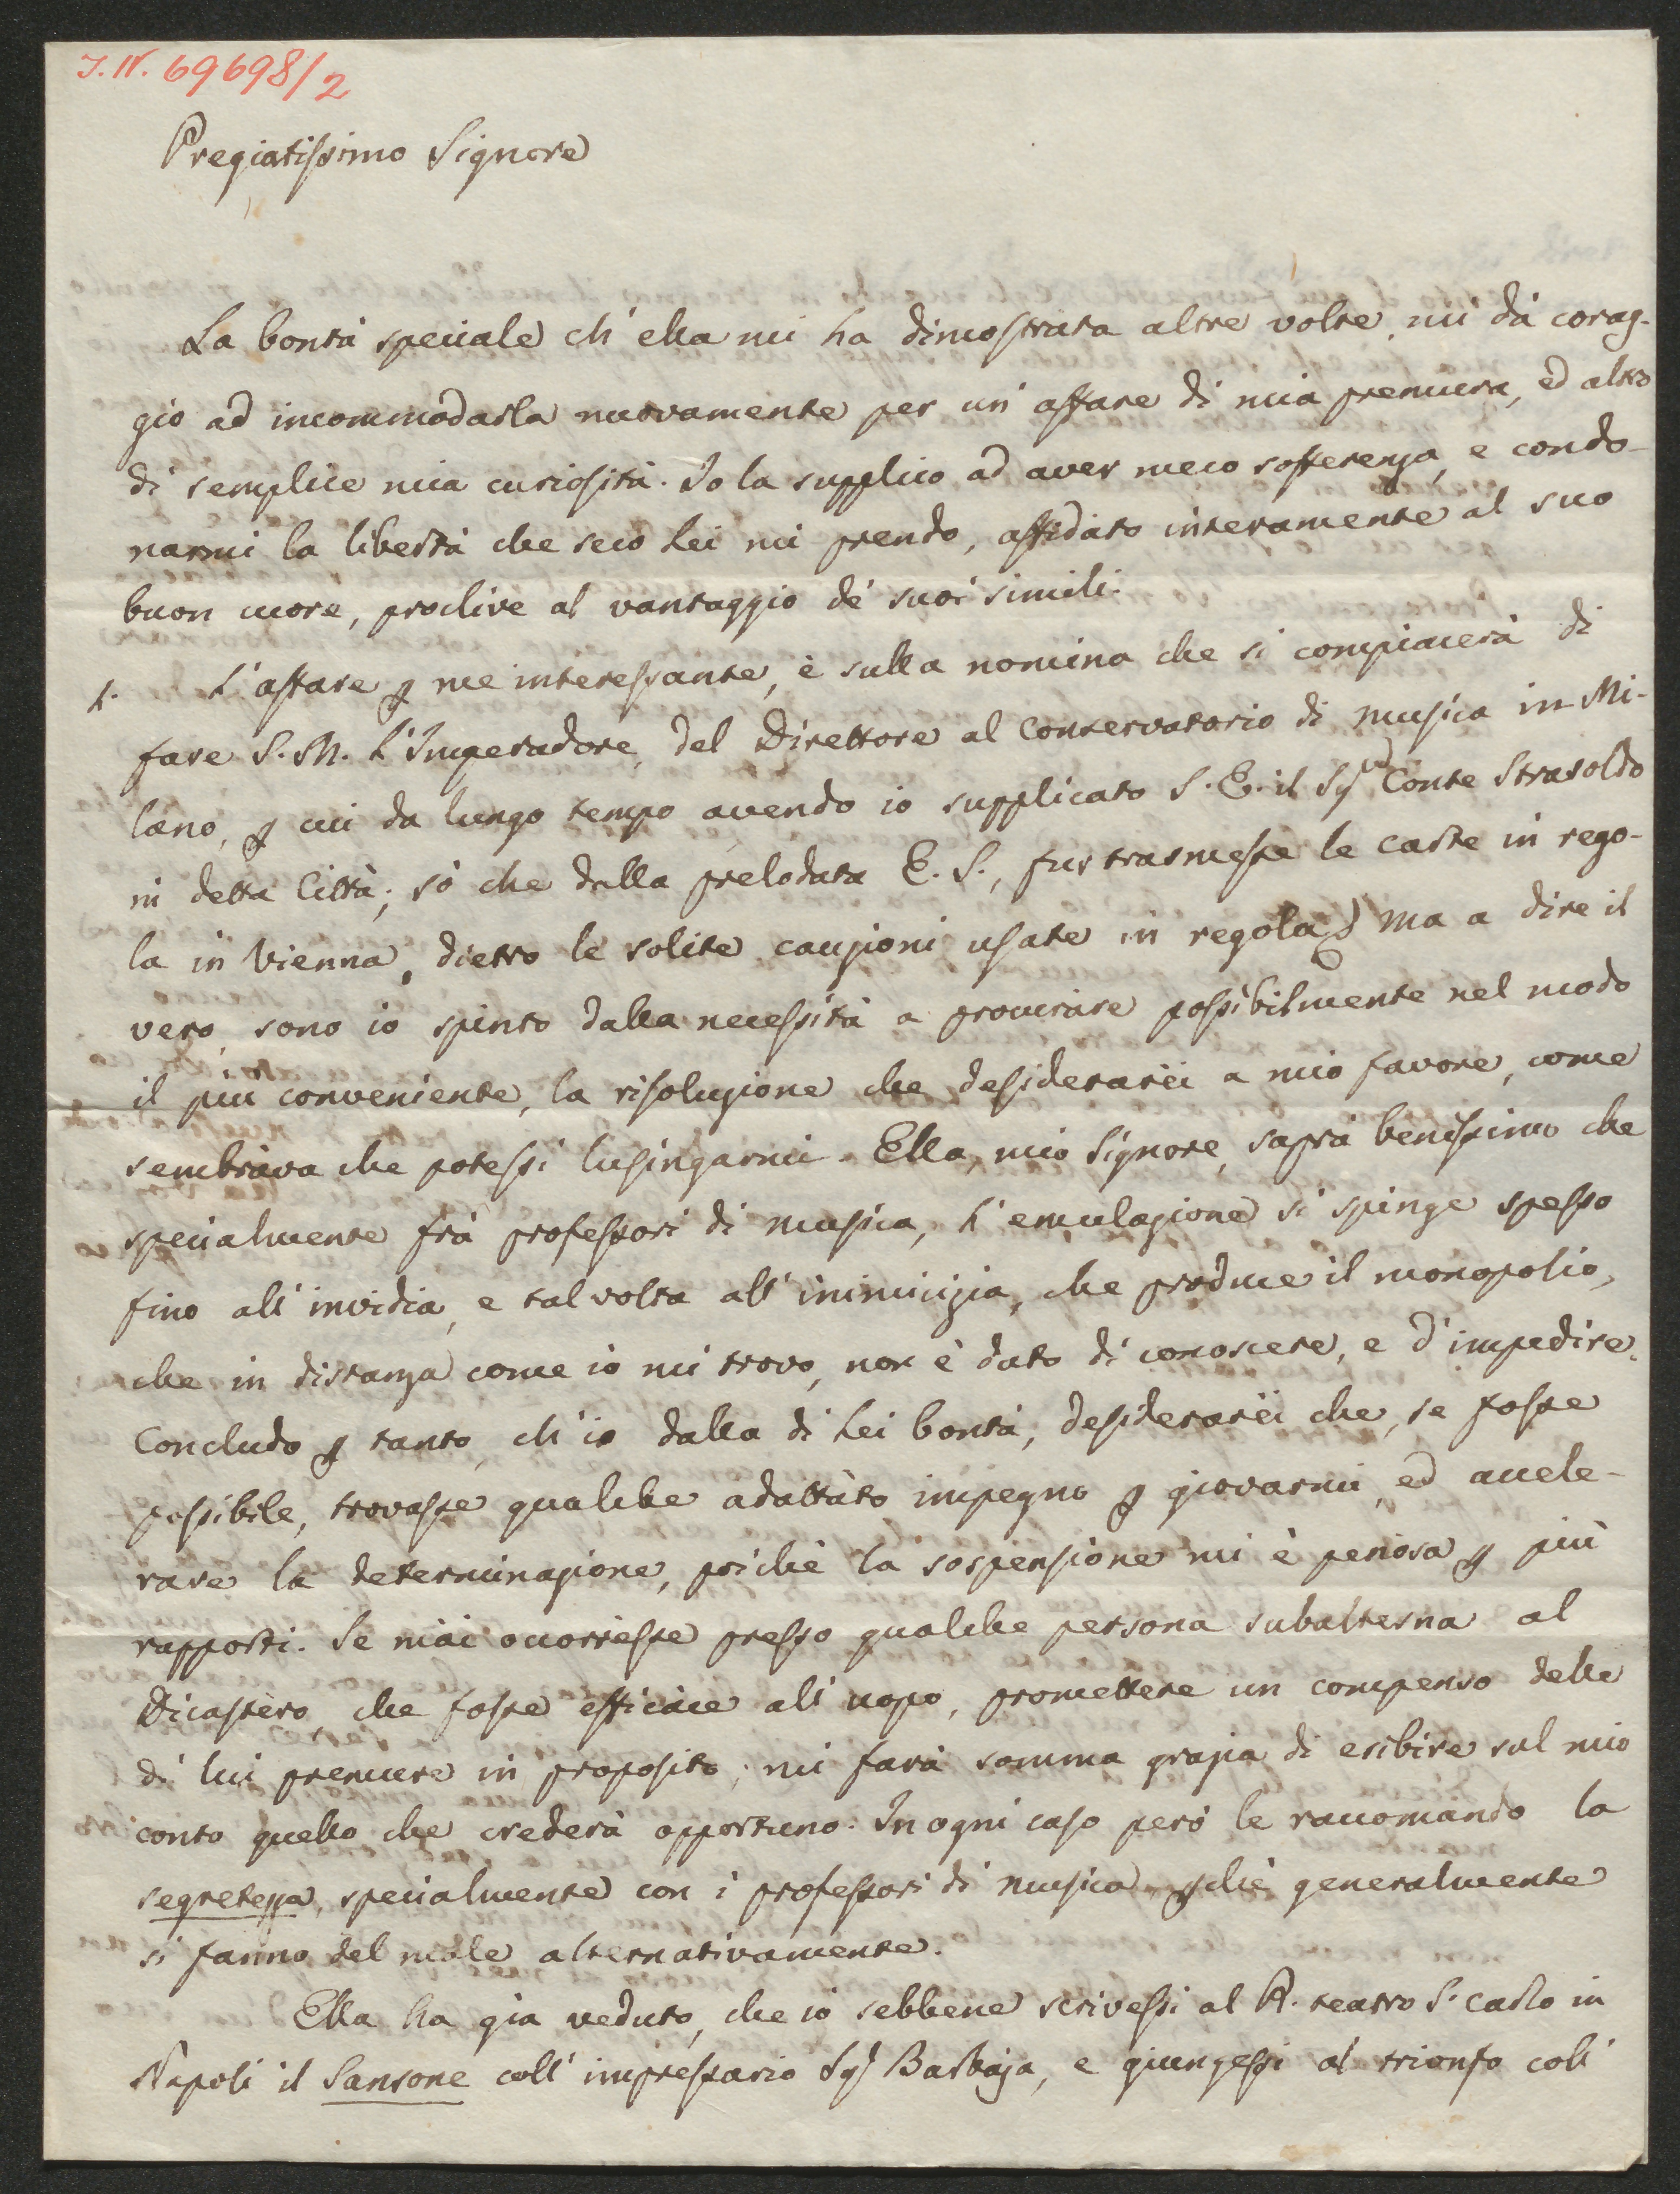 I. N. 69698/2
Pregiatissimo Signore
La bontà speciale ch'ella mi ha dimostrata altre volte, mi dà corag-
gio ad incommodarla nuovamente per un' affare di mia premura, ed altro
di semplice mia curiosità. Io la supplico ad aver meco sofferenza, e condo-
narmi la libertà che seco Lei mi prendo, affidato interamente al suo
buon cuore, proclive al vantaggio de' suoi simili.
1. L'affare p me interessante, è sulla nomina che si compiacerà di
fare S. M. L'Imperadore, del Direttore al Conservatorio di Musica in Mi-
lano, p cui da lungo tempo avendo io supplicato S. E. il Sigr Conte Strasoldo
in detta Città; sò che dalla prelodata E. S., fur trasmesse le carte in rego-
la in Vienna, dietro le solite cauzioni usate in regola; Ma a dire il
vero, sono io spinto dalla necessità a procurare possibilmente nel modo
il più conveniente, la risoluzione che desidererei a mio favore, come
sembrava che potessi lusingarmi. Ella, mio Signore, saprà benissimo che
specialmente frà professori di musica, l'emulazione si spinge spesso
fino all'invidia, e talvolta all'inimicizia, che produce il monopolio,
che in distanza come io mi trovo, non è dato di conoscere, e d'impedire.
Concludo p tanto, ch'io dalla di Lei bontà, desidererei che, se fosse
possibile, trovasse qualche adattato impegno p giovarmi, ed accele-
rare la determinazione, poichè la sospensione mi è penosa p più
rapporti. Se mai occorresse presso qualche persona subalterna al
Dicastero, che fosse efficace all'uopo, promettere un compenso delle
di lui premure in proposito; mi farà somma grazia di esibire sul mio
conto quello che crederà opportuno. In ogni caso però le raccomando la
segretezza, specialmente con i professori di musica, pchè generalmente
si fanno del male alternativamente.
Ella ha già veduto, che io sebbene scrivessi al R. teatro S. Carlo in
Napoli il Sansone coll'impressario Sigr Barbaja, e giungessi al trionfo coll'